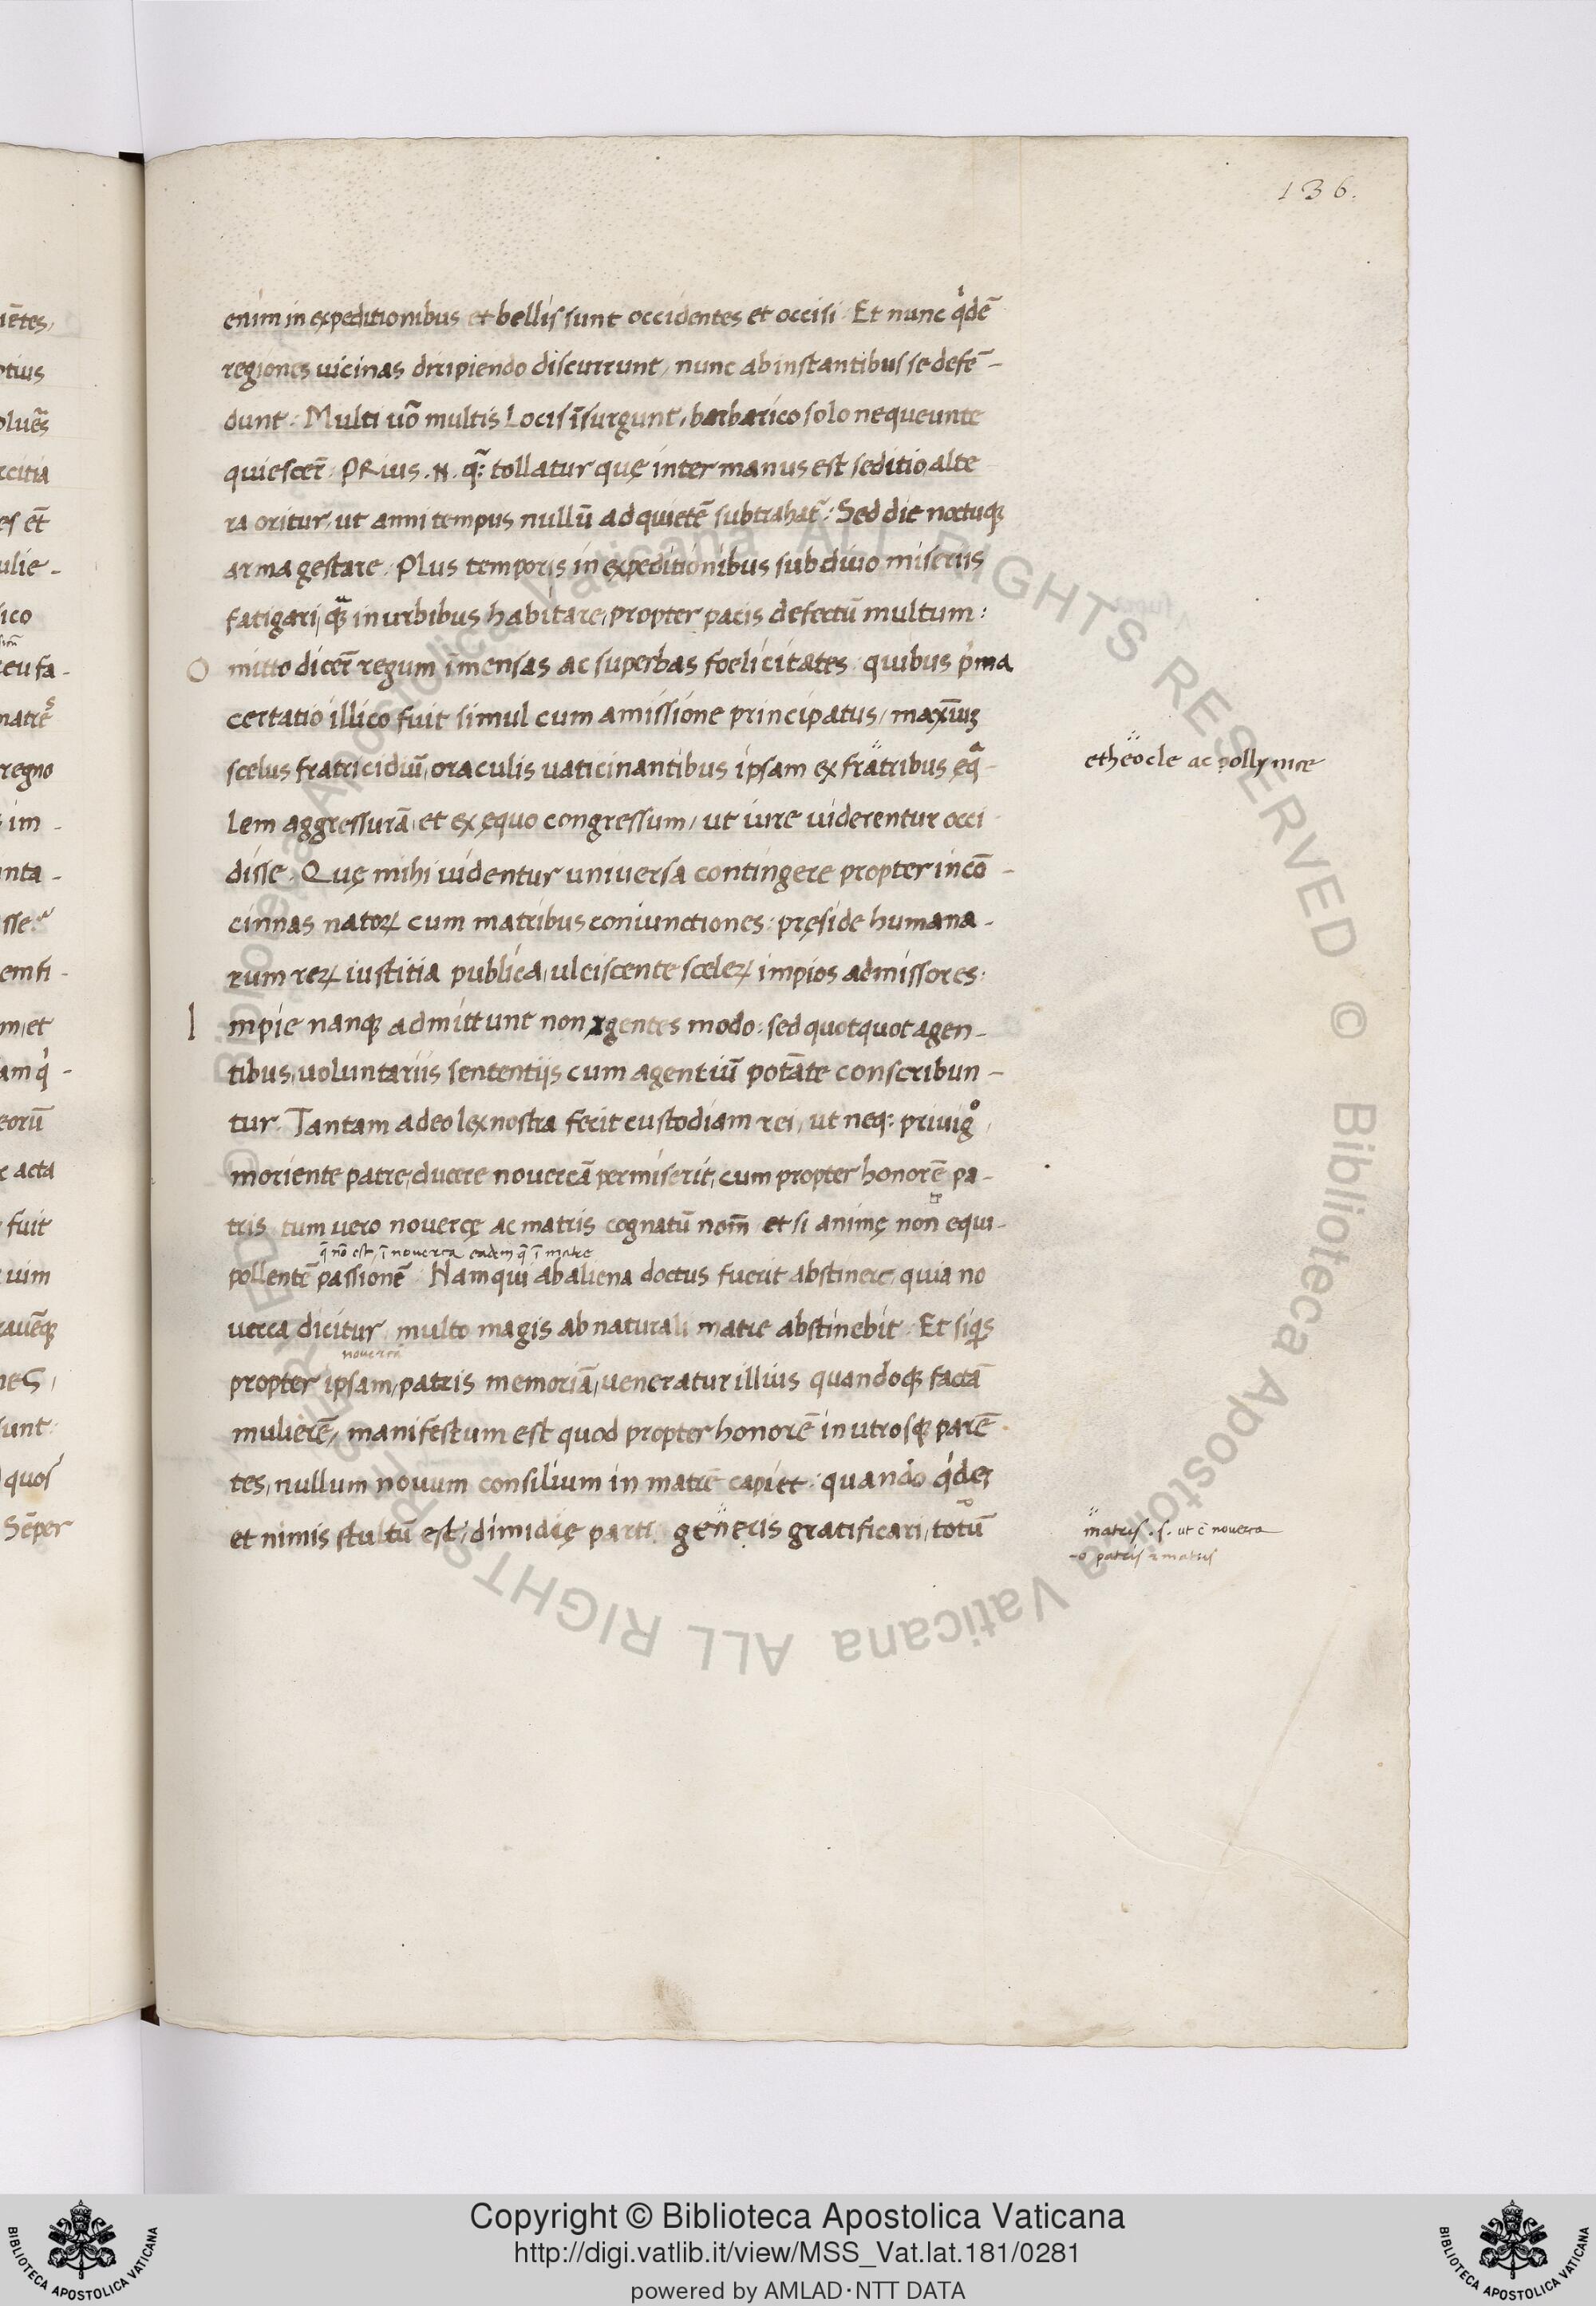 136.
iētes,
enim in expeditionibus et bellis sunt occidentes et occisi. Et nunc qͥdē
regiones uicinas diripiendo discurrunt, nunc ab instantibus se defē-
dunt: Multi uō multis Locis īsurgunt, barbarico solo nequeunte
quiescer̄. PRius .N. qᷓ: tollatur quę inter manus est seditio, alte
ra oritur, ut anni tempus nullū ad quietē subtrahat᷑: Sed die noctuqꝫ
arma gestare. Plus temporis in expeditionibus sub diuo miseriis
fatigari, qᷓꝫ in urbibus habitare, propter pacis defectū multum:
O mitto dicer̄ regum īmensas ac superbas foelicitates: quibus pͥma
certatio illico fuit simul cum amissione principatus, maxīuꝫ
scelus fratricidiū, oraculis uaticinantibus ipsam ex fratribus ęqᷓ-
etheocle ac pollynice
lem aggressurā, et ex ęquo congressum, ut iure uiderentur occi
disse. Quę mihi uidentur uniuersa contingere propter incō-
cinnas natoꝝ cum matribus coniunctiones: pręside humana-
rum reꝝ iustitia publica, ulciscente sceleꝝ impios admissores:
I mpie nanqꝫ admittunt non agentes modo: sed quotquot agen-
tibus, uoluntariis sententijs cum agentiū potāte conscribun-
tur. Tantam adeo lex nostra fecit custodiam rei, ut neq: priuigͦ,
moriente patre, ducere nouercā permiserit, cum propter honorē pa-
tris tum uero nouercę ac matris cognatū nom̄ et si animę non equi-
q̄ nō est ī nouerca eadem q̄ ī matre
pollentē passionē. Nam qui ab aliena doctus fuerit abstinere, quia no
uerca dicitur, multo magis ab naturali matre abstinebit. Et siqͥs
nouercā
propter ipsam, patris memoriā, ueneratur illius quandoqꝫ factā
mulierē, manifestum est quod propter honorē in utrosqꝫ parē-
tes, nullum nouum consilium in matrē capiet: quando qͥdeꝫ
et nimis stultū est, dimidię parti generis gratificari, totū
matris .s. ut ē nouerca
patris ⁊ matris
Copyright © Biblioteca Apostolica Vaticana
http://digi.vatlib.it/view/MSS_Vat.lat.181/0281
powered by AMLAD·NTT DATA